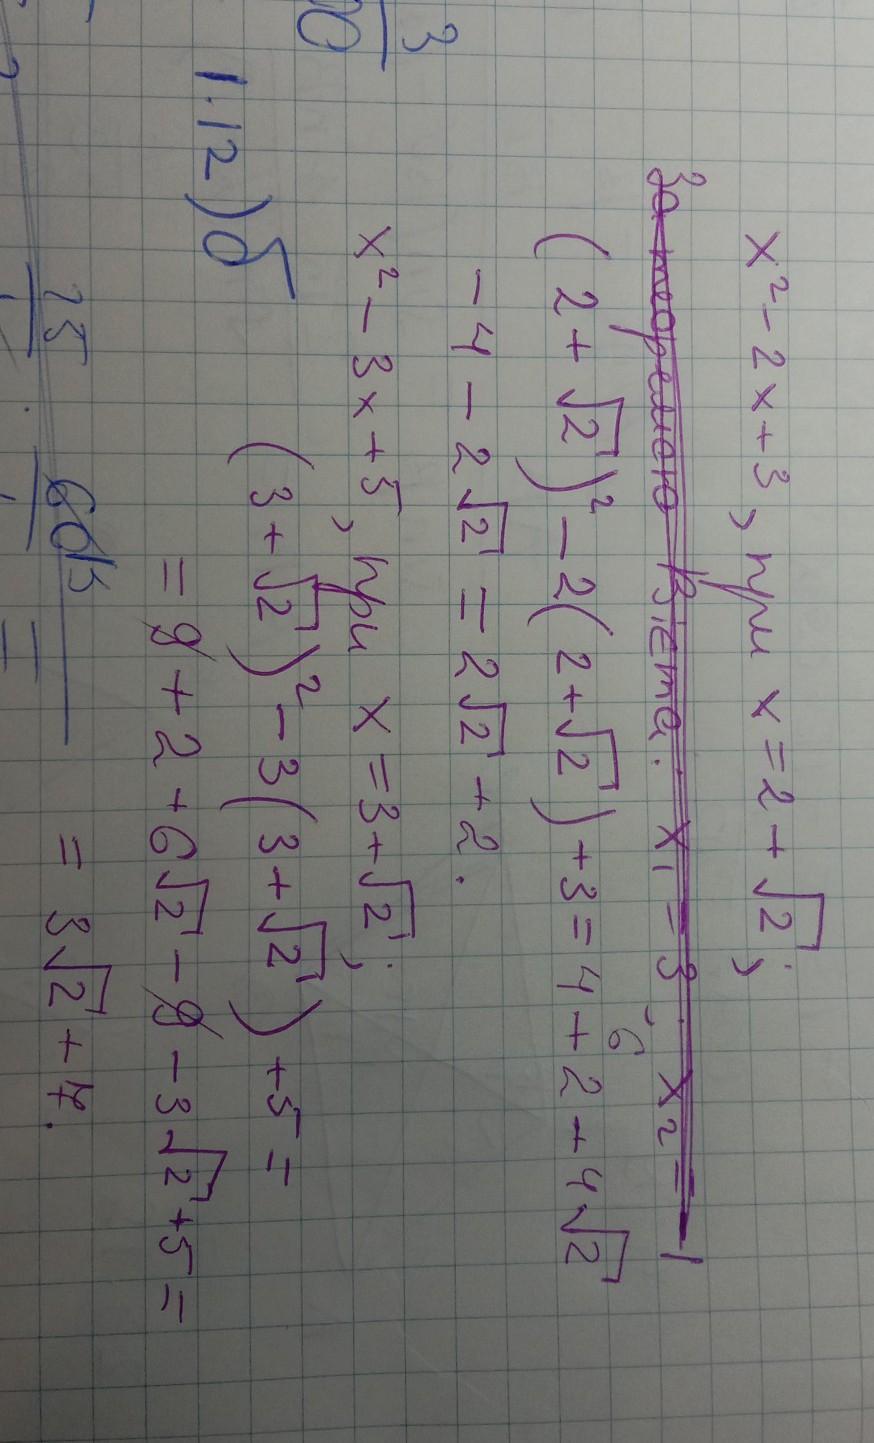 x² - 2x + 3, при x = 2 + √2;
За теоремою Вієта: x₁ = 3, x₂ = 1
(2 + √2)² - 2(2 + √2) + 3 = 4 + 2 + 4√2
6
- 4 - 2√2 = 2√2 + 2.
x² - 3x + 5, при x = 3 + √2;
(3 + √2)² - 3(3 + √2) + 5 =
= 9 + 2 + 6√2 - 9 - 3√2 + 5 =
= 3√2 + 7.
3
1.12) б
15